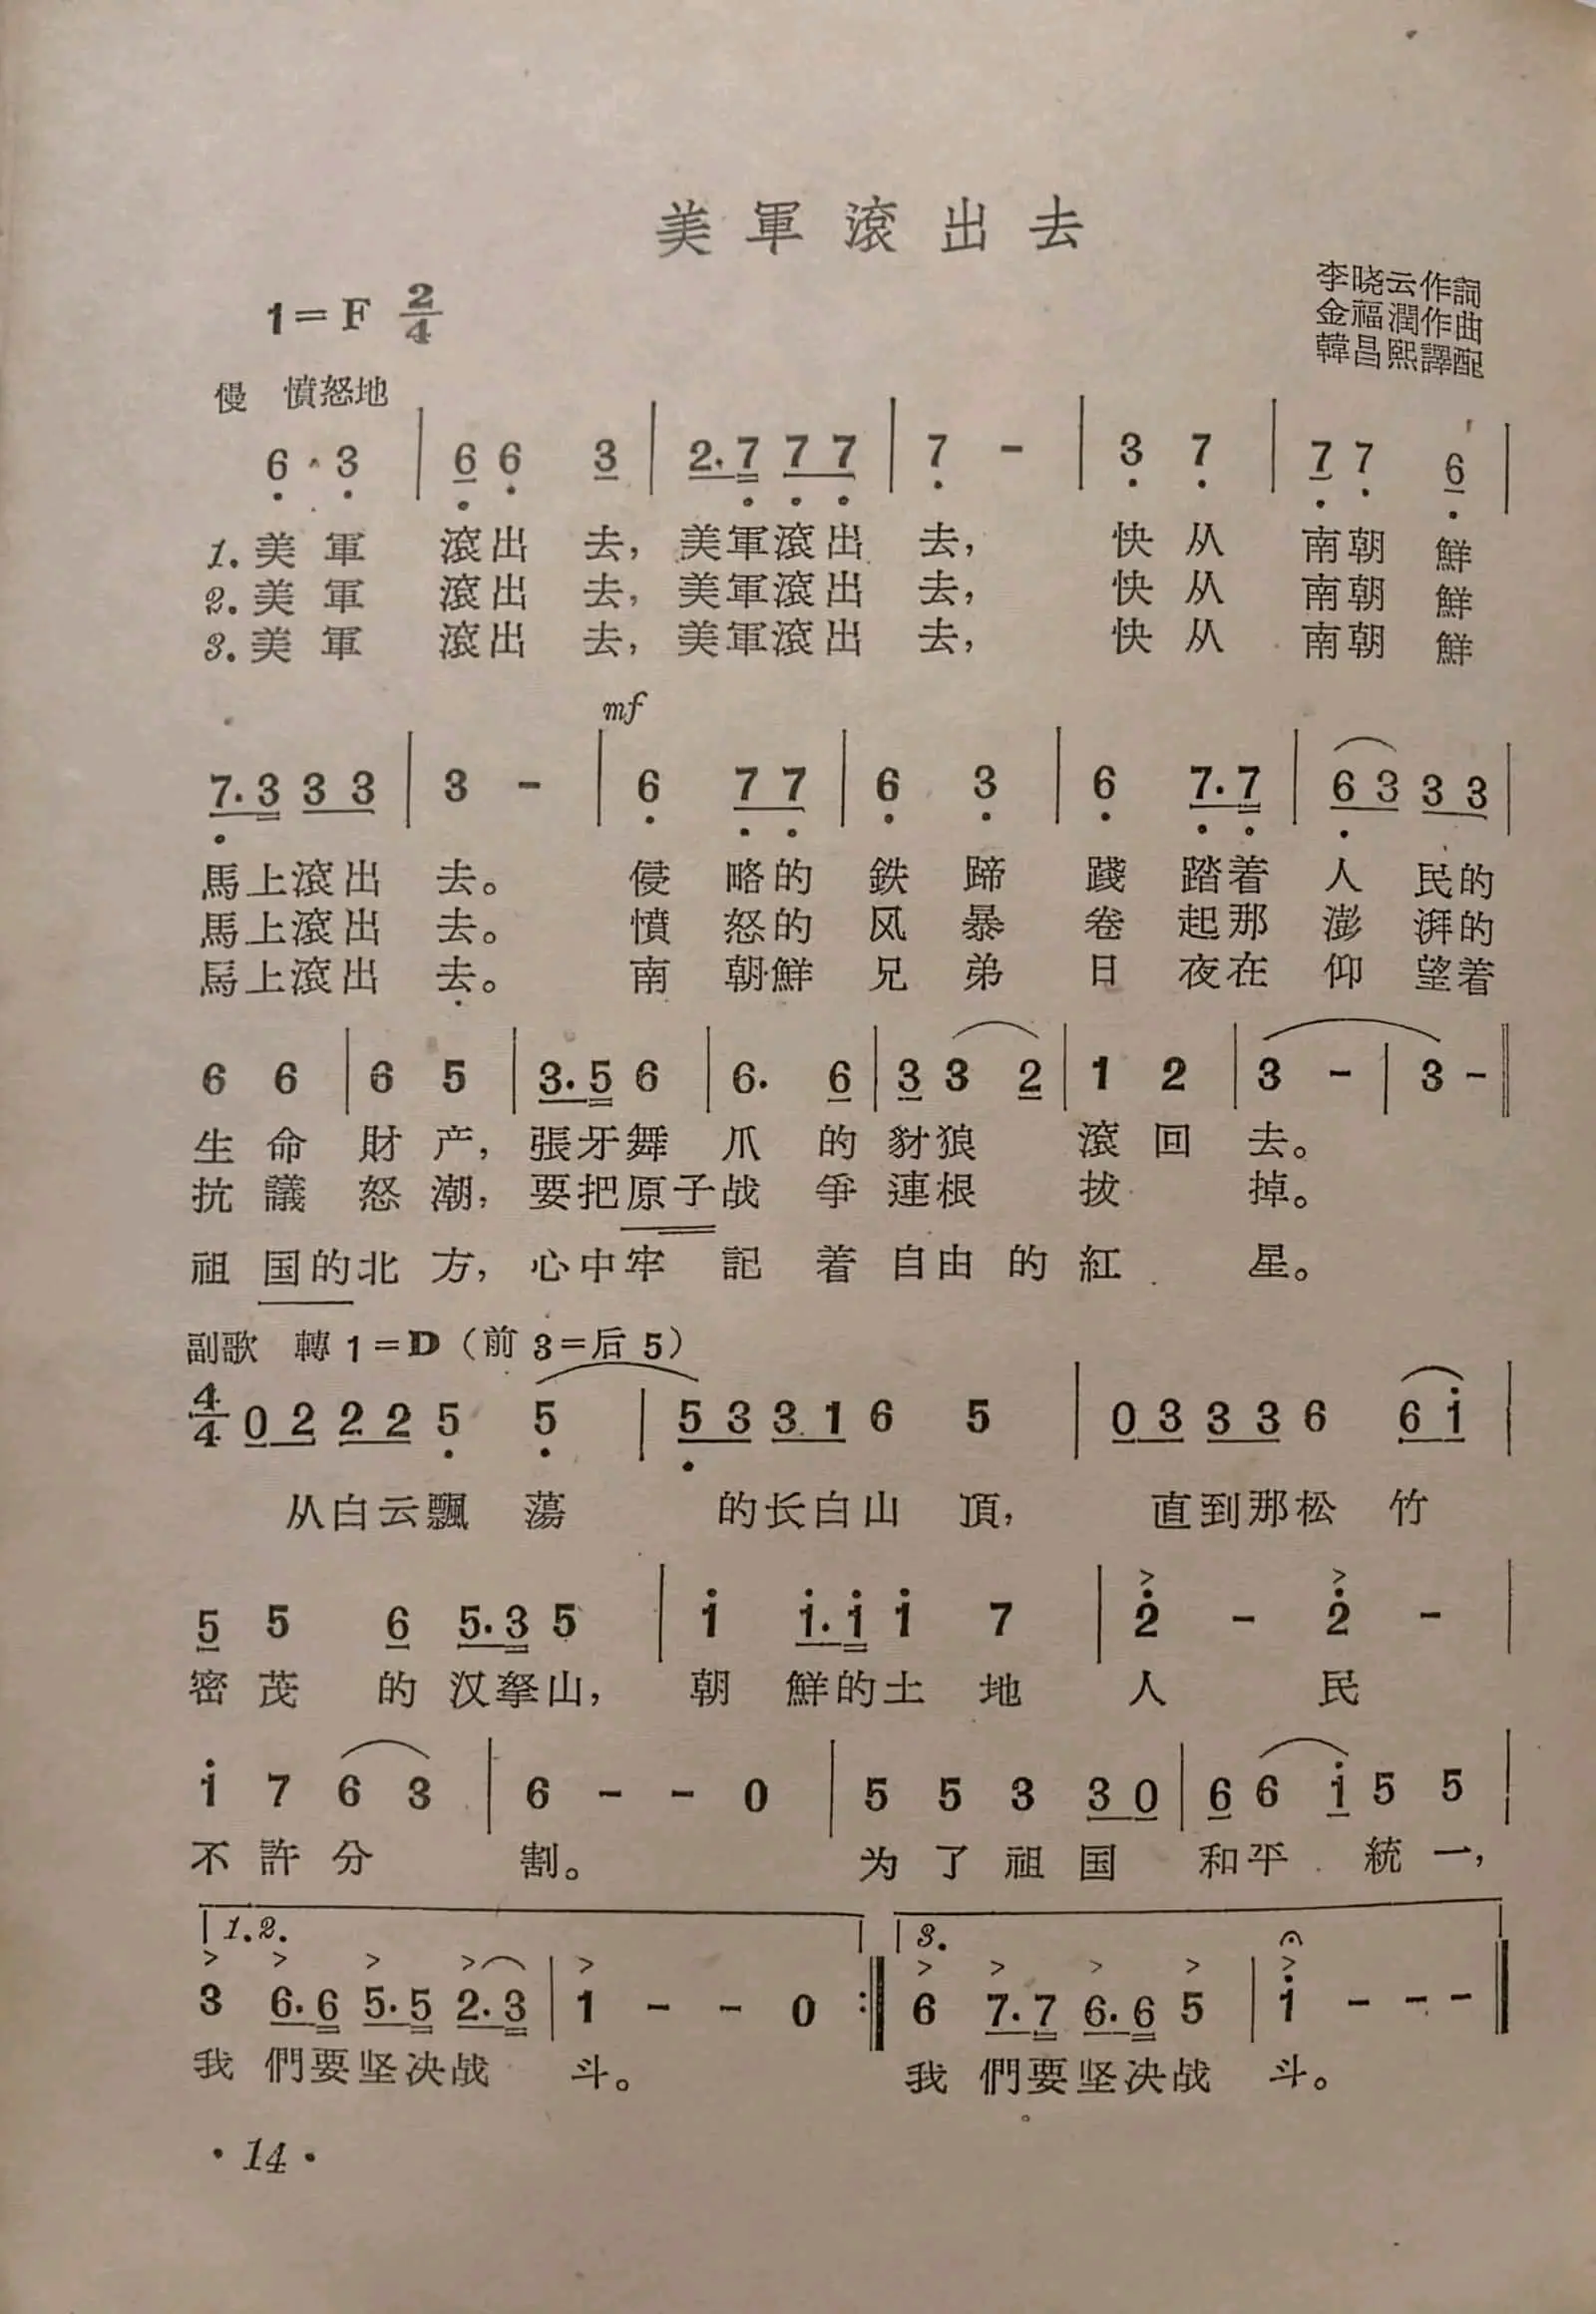 美軍滾出去
李晓云作詞
金福潤作曲
韓昌熙譯配
1=F 2/4
慢 憤怒地
6 · 3 | 6 6 3 | 2. 7 7 7 | 7 - | 3 7 | 7 7 6 |
1. 美軍 滾出 去， 美軍滾出 去， 快从 南朝 鮮
2. 美軍 滾出 去， 美軍滾出 去， 快从 南朝 鮮
3. 美軍 滾出 去， 美軍滾出 去， 快从 南朝 鮮
mf
7. 3 3 3 | 3 - | 6 7 7 | 6 3 | 6 7. 7 | 6 3 3 3 |
馬上滾出 去。 侵 略的 鉄 蹄 踐 踏着 人 民的
馬上滾出 去。 憤 怒的 风 暴 卷 起那 澎 湃的
馬上滾出 去。 南 朝鮮 兄 弟 日 夜在 仰 望着
6 6 | 6 5 | 3. 5 6 | 6. 6 | 3 3 2 | 1 2 | 3 - | 3 - ||
生命 財产， 張牙舞 爪 的 豺狼 滾回 去。
抗議 怒潮， 要把原子战 爭 連根 拔 掉。
祖 国的北 方， 心中牢 記 着 自由 的 紅 星。
副歌 轉 1=D（前 3=后 5）
4/4 0 2 2 2 5 5 | 5 3 3 1 6 5 | 0 3 3 3 6 6 i |
从白云飄 蕩 的长白山 頂， 直到那松 竹
5 5 6 5. 3 5 | i i. i i 7 | 2 - 2 - |
密 茂 的 汉拏山， 朝 鮮的土 地 人 民
i 7 6 3 | 6 - - 0 | 5 5 3 3 0 | 6 6 i 5 5 |
不 許 分 割。 为 了 祖 国 和平 統 一，
1.2. 3.
3 6. 6 5. 5 2. 3 | 1 - - 0 :|| 6 7. 7 6. 6 5 | i - - - ||
我 們要坚决战 斗。 我 們要坚决战 斗。
· 14 ·